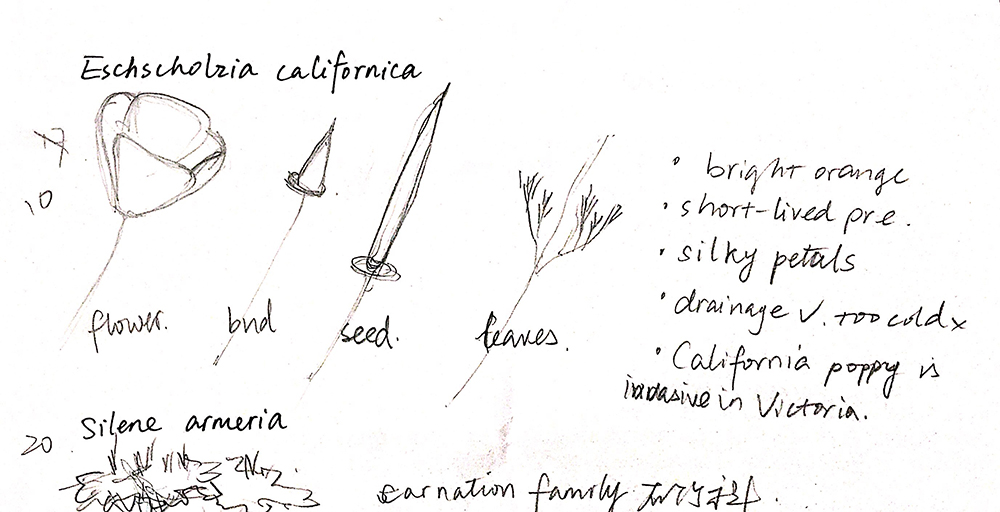 Eschscholzia californica
17
10
flower.
bud
seed.
leaves.
• bright orange
• short-lived pre.
• silky petals
• drainage ✓. too cold ×
• California poppy is
invasive in Victoria.
20
Silene armeria
carnation family 石竹科.